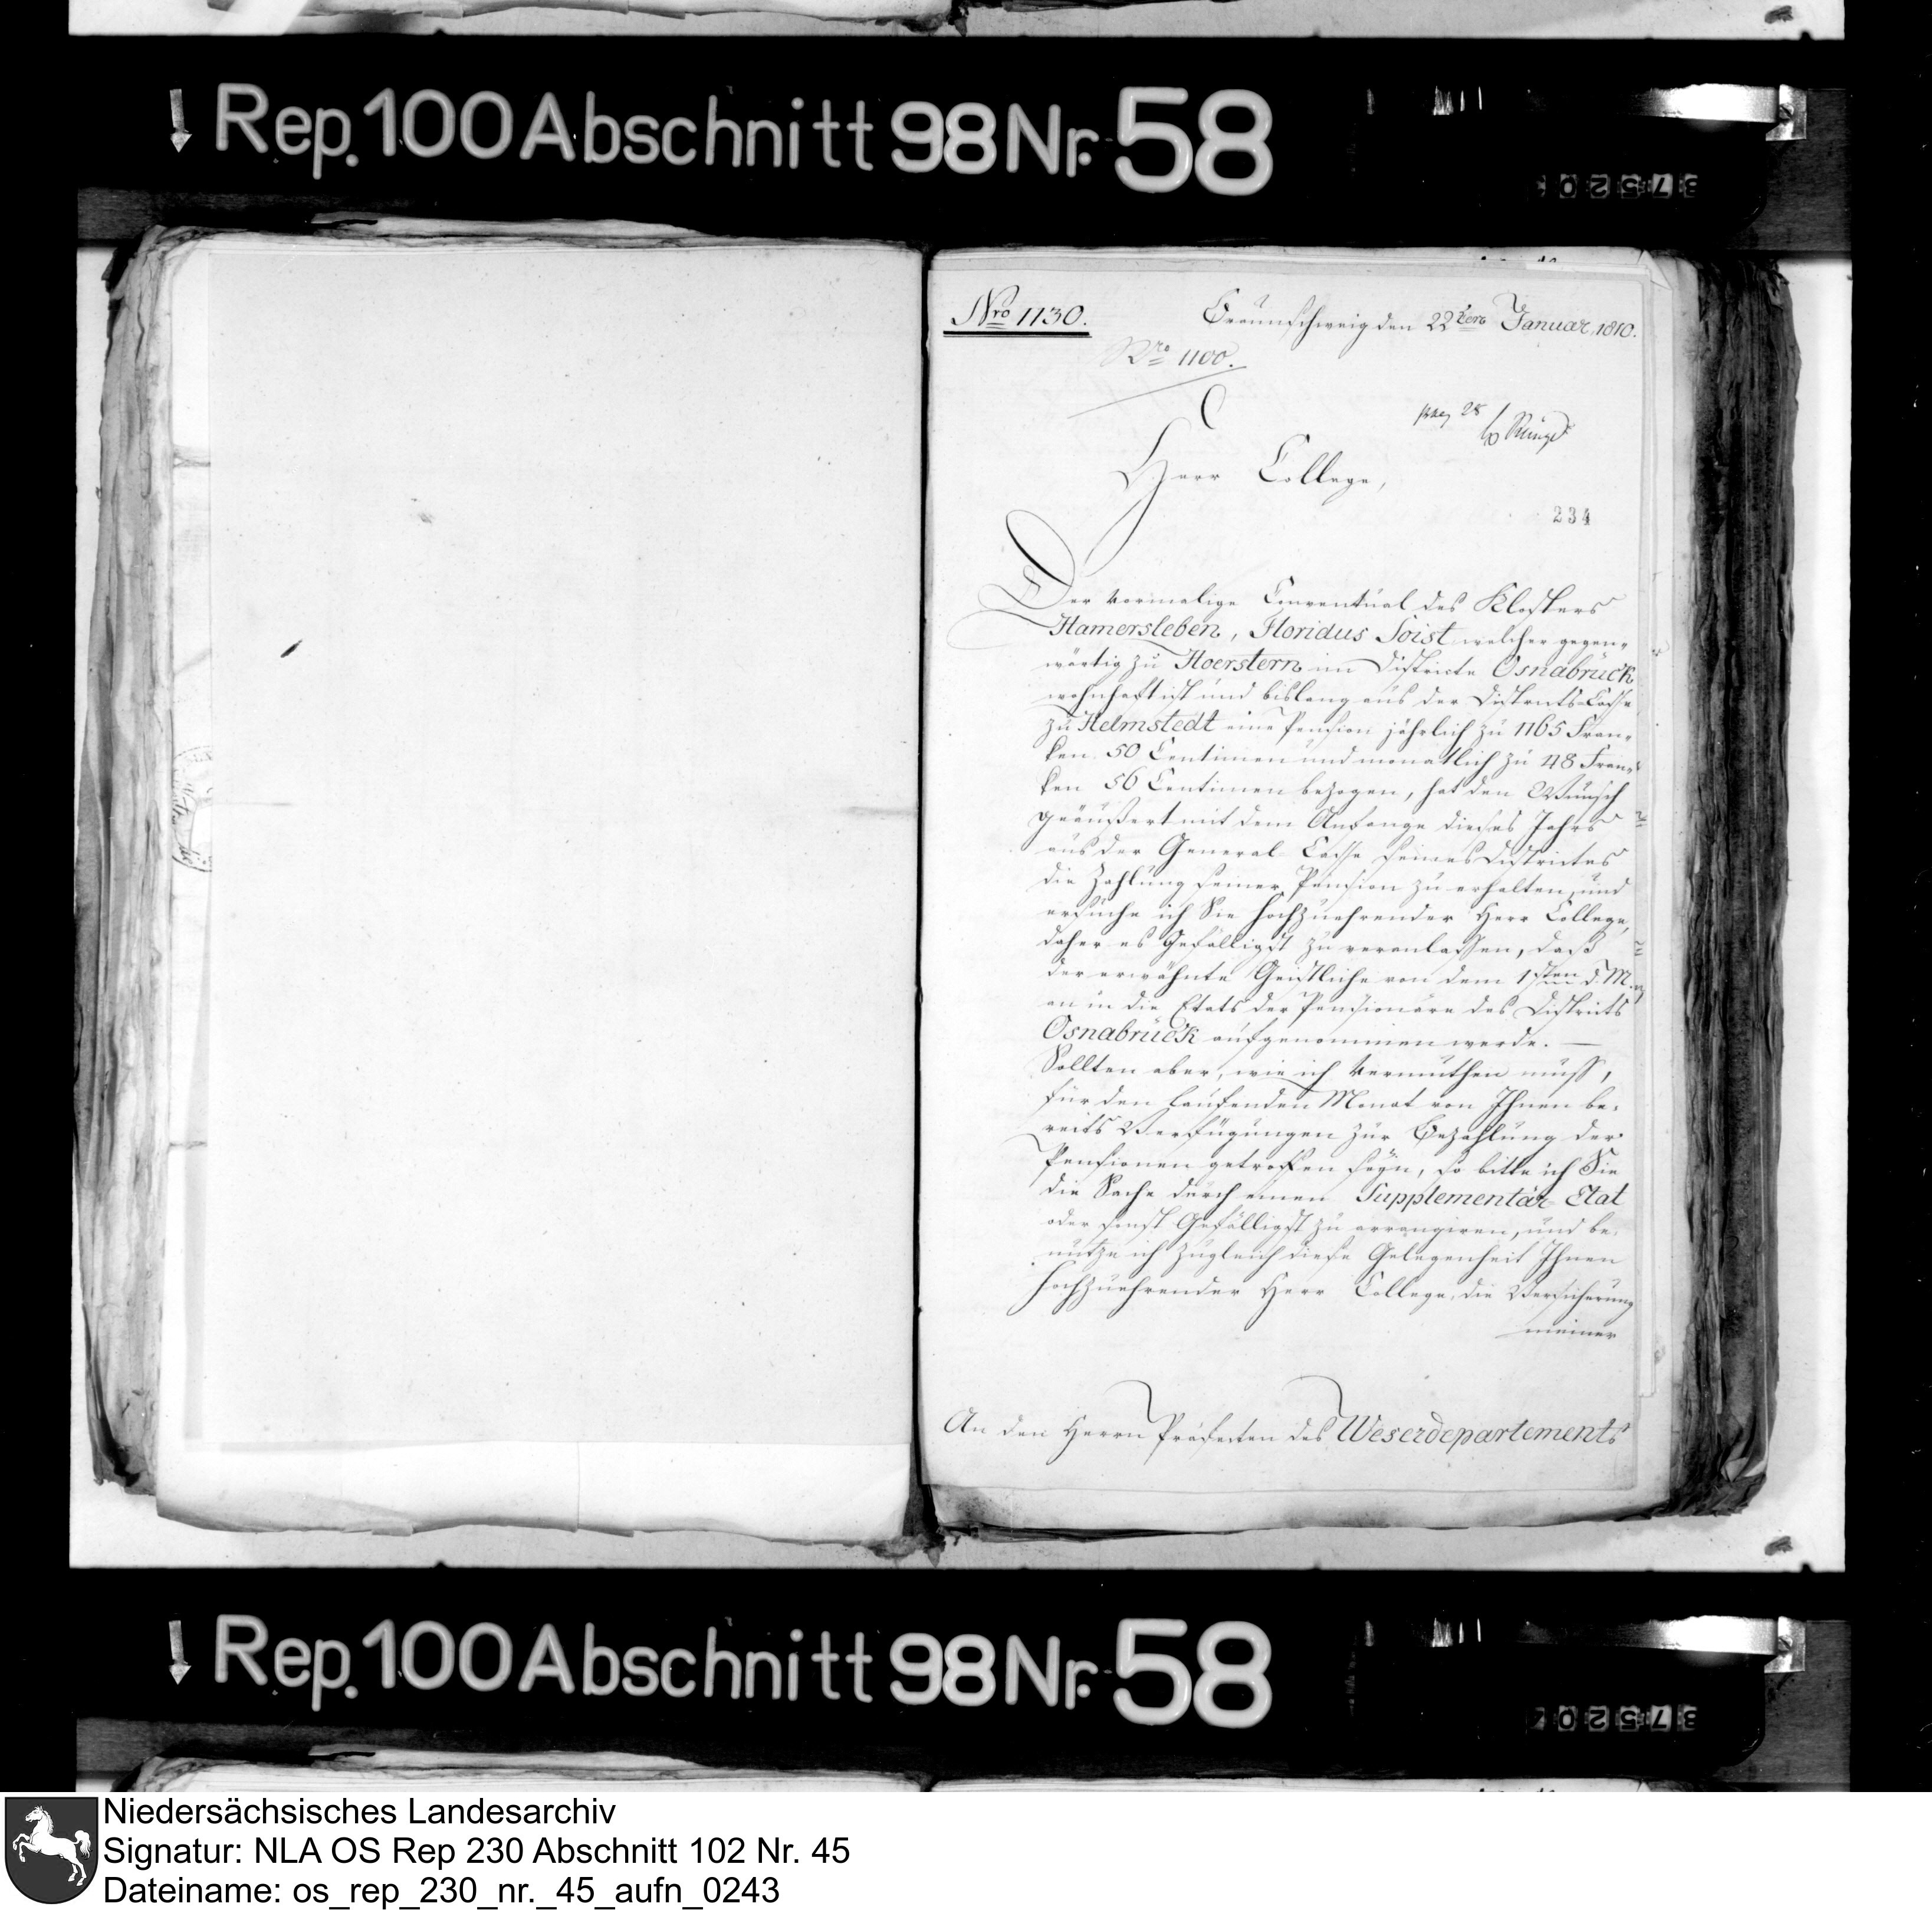 Rep. 100 Abschnitt 98 Nr. 58
Nro 1130.
Braunschweig den 22ten Januar, 1810.
Nro 1100.
28
Herr College,
234
Der vormalige Conventual des Klosters
Hamersleben, Floridus Soist welcher gegen-
wärtig zu Hoerstern im Districte Osnabrück
wohnhaft ist und bislang aus der Districts-Casse
zu Helmstedt eine Pension jährlich zu 1165 Fran-
ken 50 Centimen und monatlich zu 48 Fran-
ken 56 Centimen bezogen, hat den Wunsch
geäußert mit dem Anfange dieses Jahrs
aus der General-Casse seines Districtes
die Zahlung seiner Pension zu erhalten, und
ersuche ich Sie hochzuehrender Herr College,
daher es Gefälligst zu veranlassen, daß
der erwähnte Geistliche von dem 1sten d. M.
an in die Etats der Pensionäre des Districts
Osnabrück aufgenommen werde. —
Sollten aber, wie ich vermuthen muß,
für den laufenden Monat von Ihnen be-
reits Verfügungen zur Bezahlung der
Pensionen getroffen seyn, so bitte ich Sie
die Sache durch einen Supplementär-Etat
oder sonst Gefälligst zu arrangiren, und be-
nutze ich zugleich diese Gelegenheit Ihnen
hochzuehrender Herr College, die Versicherung
meiner
An den Herrn Präfecten des Weserdepartements
Rep. 100 Abschnitt 98 Nr. 58
Niedersächsisches Landesarchiv
Signatur: NLA OS Rep 230 Abschnitt 102 Nr. 45
Dateiname: os_rep_230_nr._45_aufn_0243